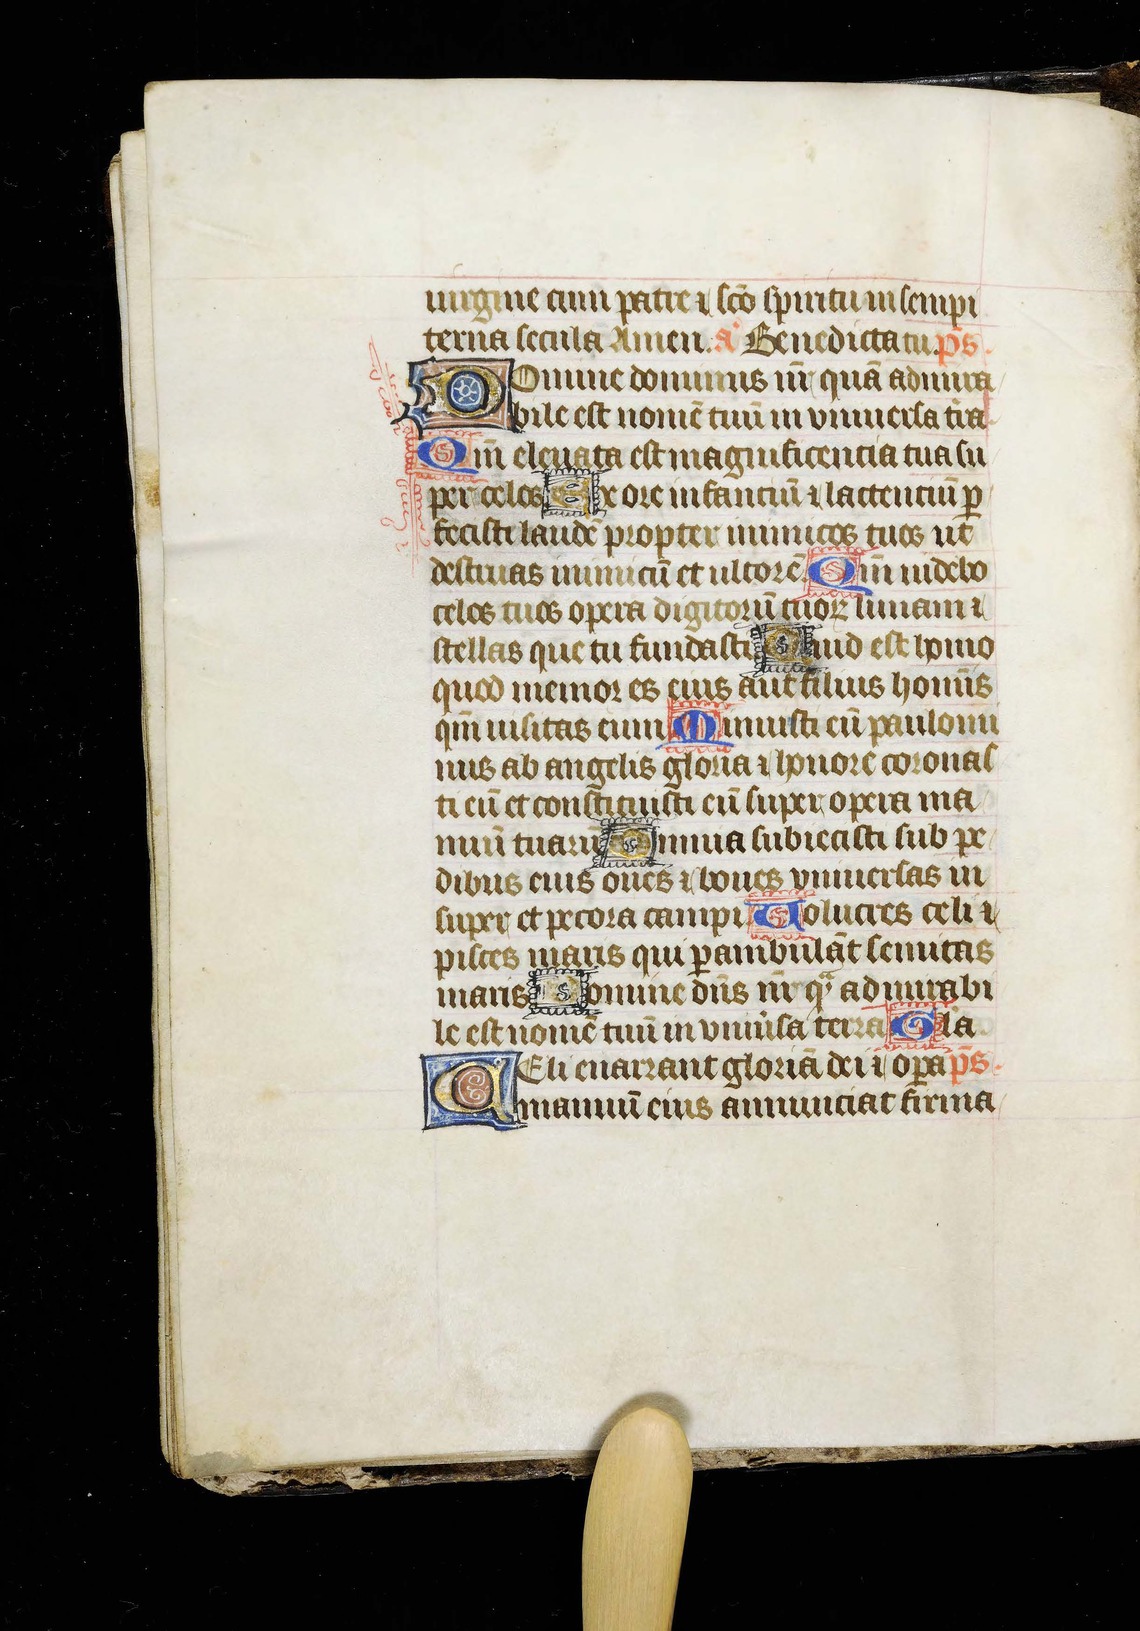 uirgine cum patre ⁊ sc̄o spiritu in sempi
terna secula Amen. a̾ Benedicta tu. p̄s.
Domine dominus nr̄ quā admira
bile est nomē tuū in vniuersa tr̄a
Qm̄ eleuata est magnificencia tua su
per celos Ex ore infanciū ⁊ lactenciū p̱
fecisti laudē propter inimicos tuos ut
destruas inimicū et ultorē. Qm̄ uidebo
celos tuos opera digitorū tuoꝝ lunam ⁊
stellas que tu fundasti Quid est homo
quod memor es eius aut filius homīs
qm̄ uisitas eum Minuisti eū paulomi
nus ab angelis gloria ⁊ honore coronas
ti eū et constituisti eū super opera ma
nuū tuarū Omnia subiecisti sub pe
dibus eius oues ⁊ boues vniuersas in
super et pecora campi. Uolucres celi ⁊
pisces maris qui p̱ambulāt semitas
maris Domine dn̄s nr̄ qͣ admirabi
le est nomē tuū in vniūsa terra Gl̄a
Celi enarrant gloriā dei ⁊ op̱a p̄s.
manuū eius annunciat firma